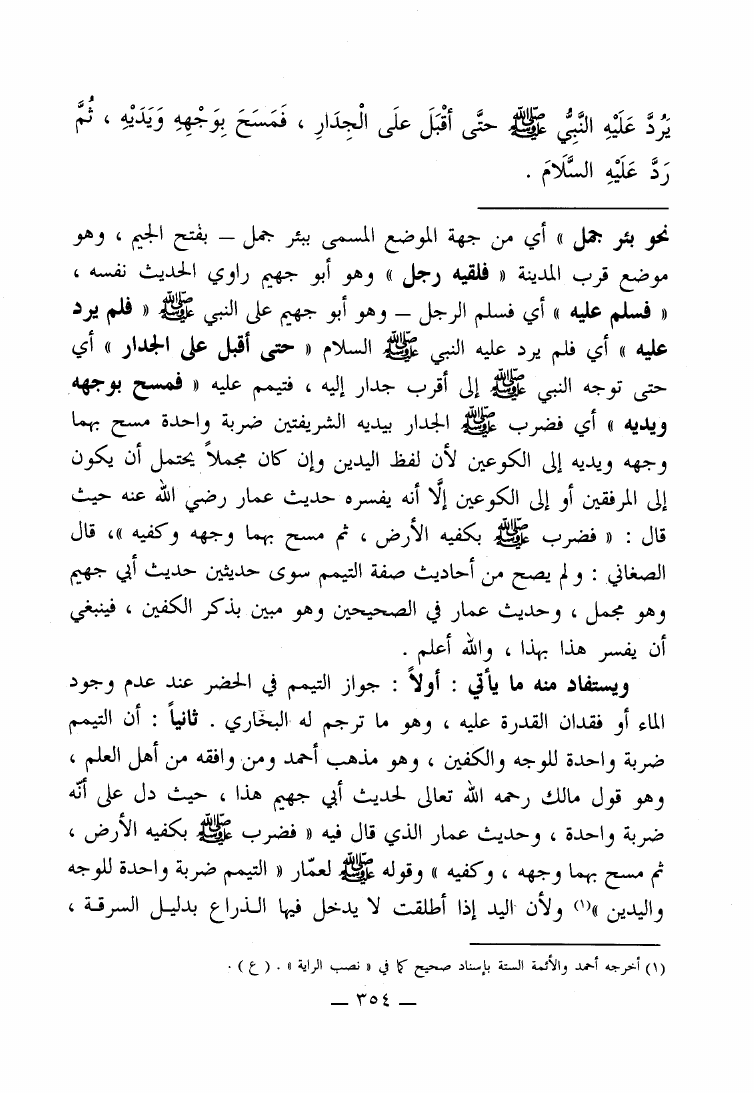 يَرُدَّ عَلَيْهِ النَّبِيُّ ﷺ حتَّى أقْبَلَ علَى الْجِدَارِ ، فَمَسَحَ بِوَجْهِهِ وَيَدَيْهِ ، ثُمَّ
رَدَّ عَلَيْهِ السَّلَامَ .
نحو بئر جمل » أي من جهة الموضع المسمى ببئر جمل ــ بفتح الجيم ، وهو
موضع قرب المدينة « فلقيه رجل » وهو أبو جهيم راوي الحديث نفسه ،
« فسلم عليه » أي فسلم الرجل ــ وهو أبو جهيم على النبي ﷺ « فلم يرد
عليه » أي فلم يرد عليه النبي ﷺ السلام « حتى أقبل على الجدار » أي
حتى توجه النبي ﷺ إلى أقرب جدار إليه ، فتيمم عليه « فمسح بوجهه
ويديه » أي فضرب ﷺ الجدار بيديه الشريفتين ضربة واحدة مسح بهما
وجهه ويديه إلى الكوعين لأن لفظ اليدين وإن كان مجملاً يحتمل أن يكون
إلى المرفقين أو إلى الكوعين إلَّا أنه يفسره حديث عمار رضي الله عنه حيث
قال : « فضرب ﷺ بكفيه الأرض ، ثم مسح بهما وجهه وكفيه »، قال
الصغاني : ولم يصح من أحاديث صفة التيمم سوى حديثين حديث أبي جهيم
وهو مجمل ، وحديث عمار في الصحيحين وهو مبين بذكر الكفين ، فينبغي
أن يفسر هذا بهذا ، والله أعلم .
ويستفاد منه ما يأتي : أولاً : جواز التيمم في الحضر عند عدم وجود
الماء أو فقدان القدرة عليه ، وهو ما ترجم له البخاري . ثانياً : أن التيمم
ضربة واحدة للوجه والكفين ، وهو مذهب أحمد ومن وافقه من أهل العلم ،
وهو قول مالك رحمه الله تعالى لحديث أبي جهيم هذا ، حيث دل على أنّه
ضربة واحدة ، وحديث عمار الذي قال فيه « فضرب ﷺ بكفيه الأرض ،
ثم مسح بهما وجهه ، وكفيه » وقوله ﷺ لعمّار « التيمم ضربة واحدة للوجه
واليدين »(١) ولأن اليد إذا أطلقت لا يدخل فيها الـذراع بدليـل السرقـة ،
(١) أخرجه أحمد والأئمة الستة بإسناد صحيح كما في « نصب الراية » . ( ع ) .
ــ ٣٥٤ ــ